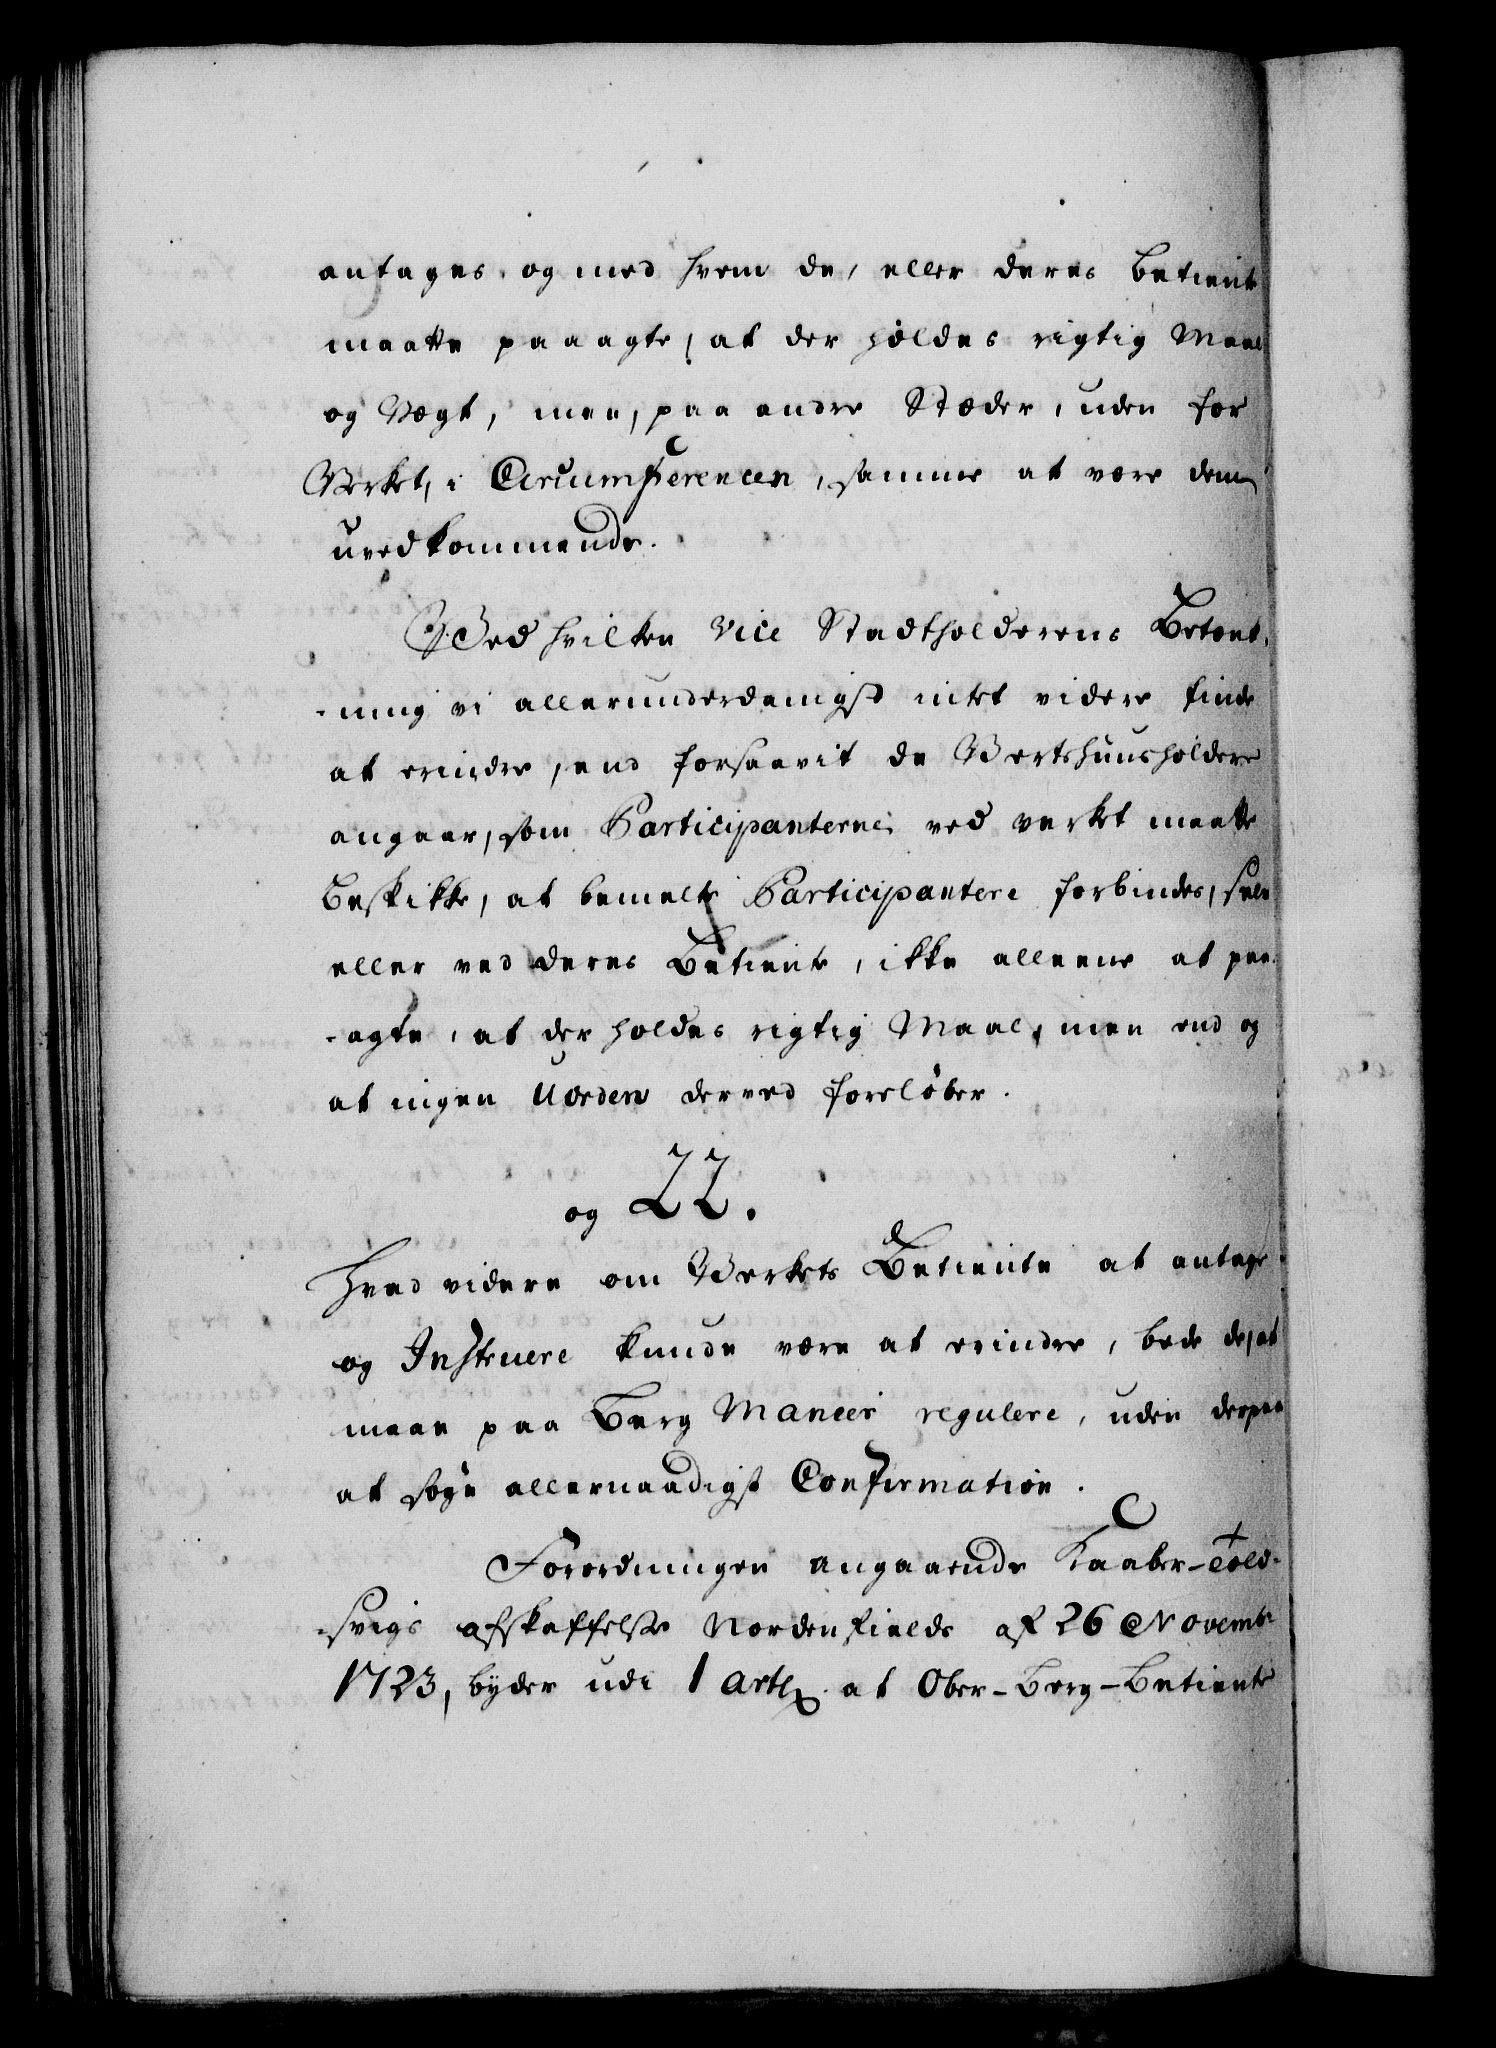 antages, og med hvem de, eller deres Betiente
maatte paaagte, at der holdes rigtig Maal
og Vegt, men, paa andre Stæder, uden for
Verket, i Circumferencen, samme at være dem
uvedkommende.
Ved hvilken Vice Stadtholderens Betænk-
-ning vi allerunderdanigst intet videre finde
at erindre, end forsaavit de Vertshuusholdere
angaar, som Participanterne ved verket maatte
beskikke, at bemelte Participantere forbindes, selv
eller ved deres Betiente, ikke alleene at paa-
-agte, at der holdes rigtig Maal, men end og
at ingen Uorden derved foreløber.
og 22.
Hvad videre om Verkets Betiente at antage
og Instruere kunde være at erindre, bede de, at
maae paa Berg Maneer regulere, uden derpaa
at søge allernaadigst Confirmation.
Forordningen angaaende Kaaber-Told-
-svigs afskaffelse Nordenfields af 26 Novembr
1723, byder udi 1 Artl. at Ober-Berg-Betiente